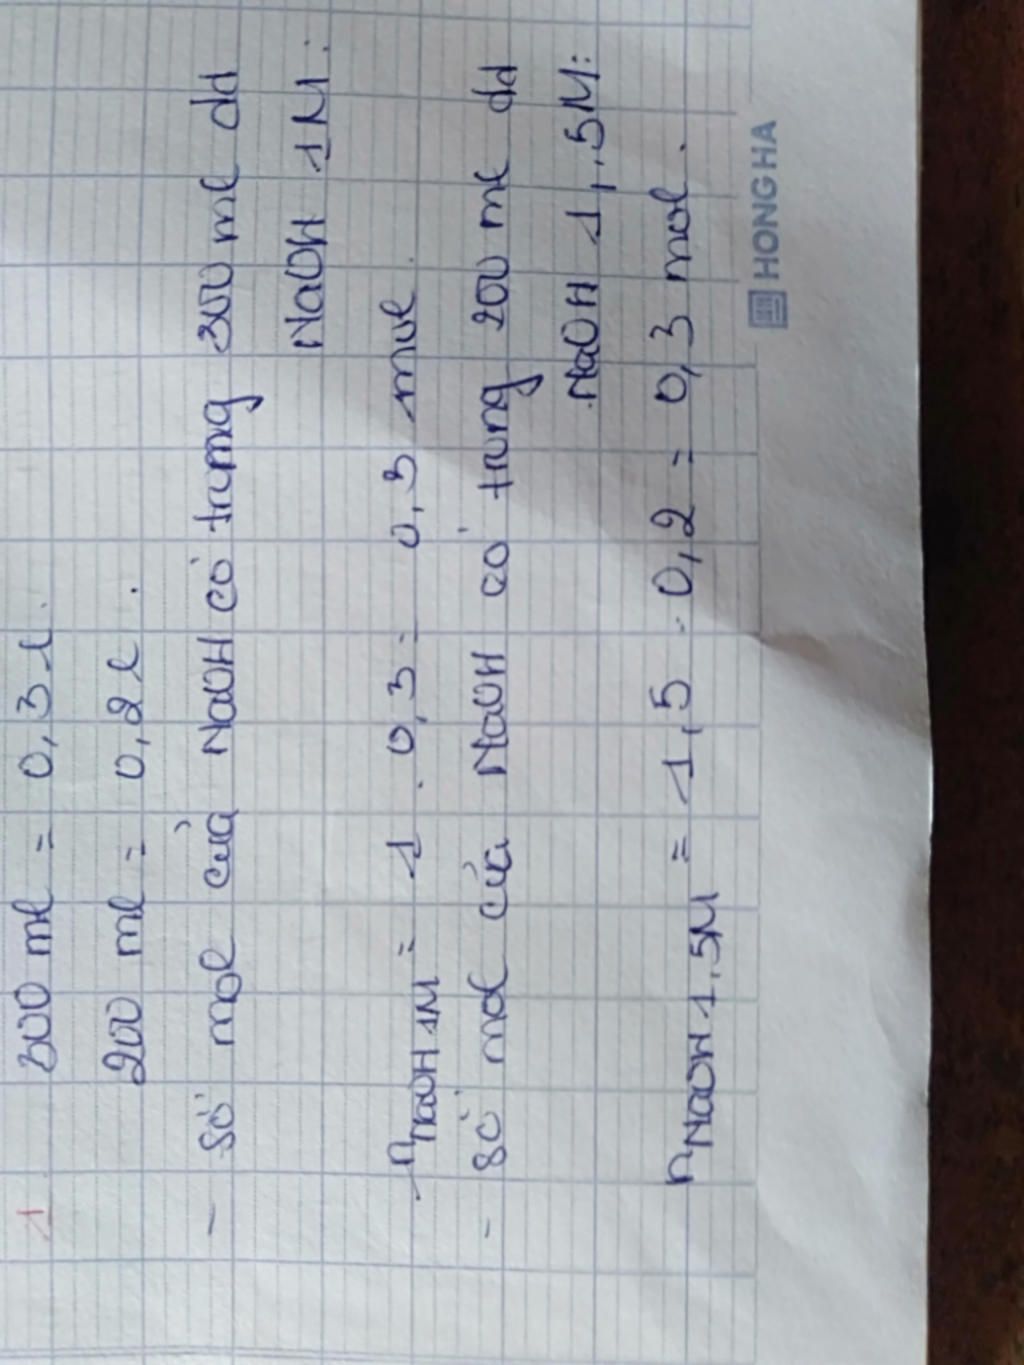 1 300 ml = 0,3 l.
200 ml = 0,2 l.
- số mol của NaOH có trong 300 ml dd
NaOH 1M:
nNaOH 1M = 1 . 0,3 = 0,3 mol.
- số mol của NaOH có trong 200 ml dd
NaOH 1,5M:
nNaOH 1,5M = 1,5 . 0,2 = 0,3 mol.
HONG HA